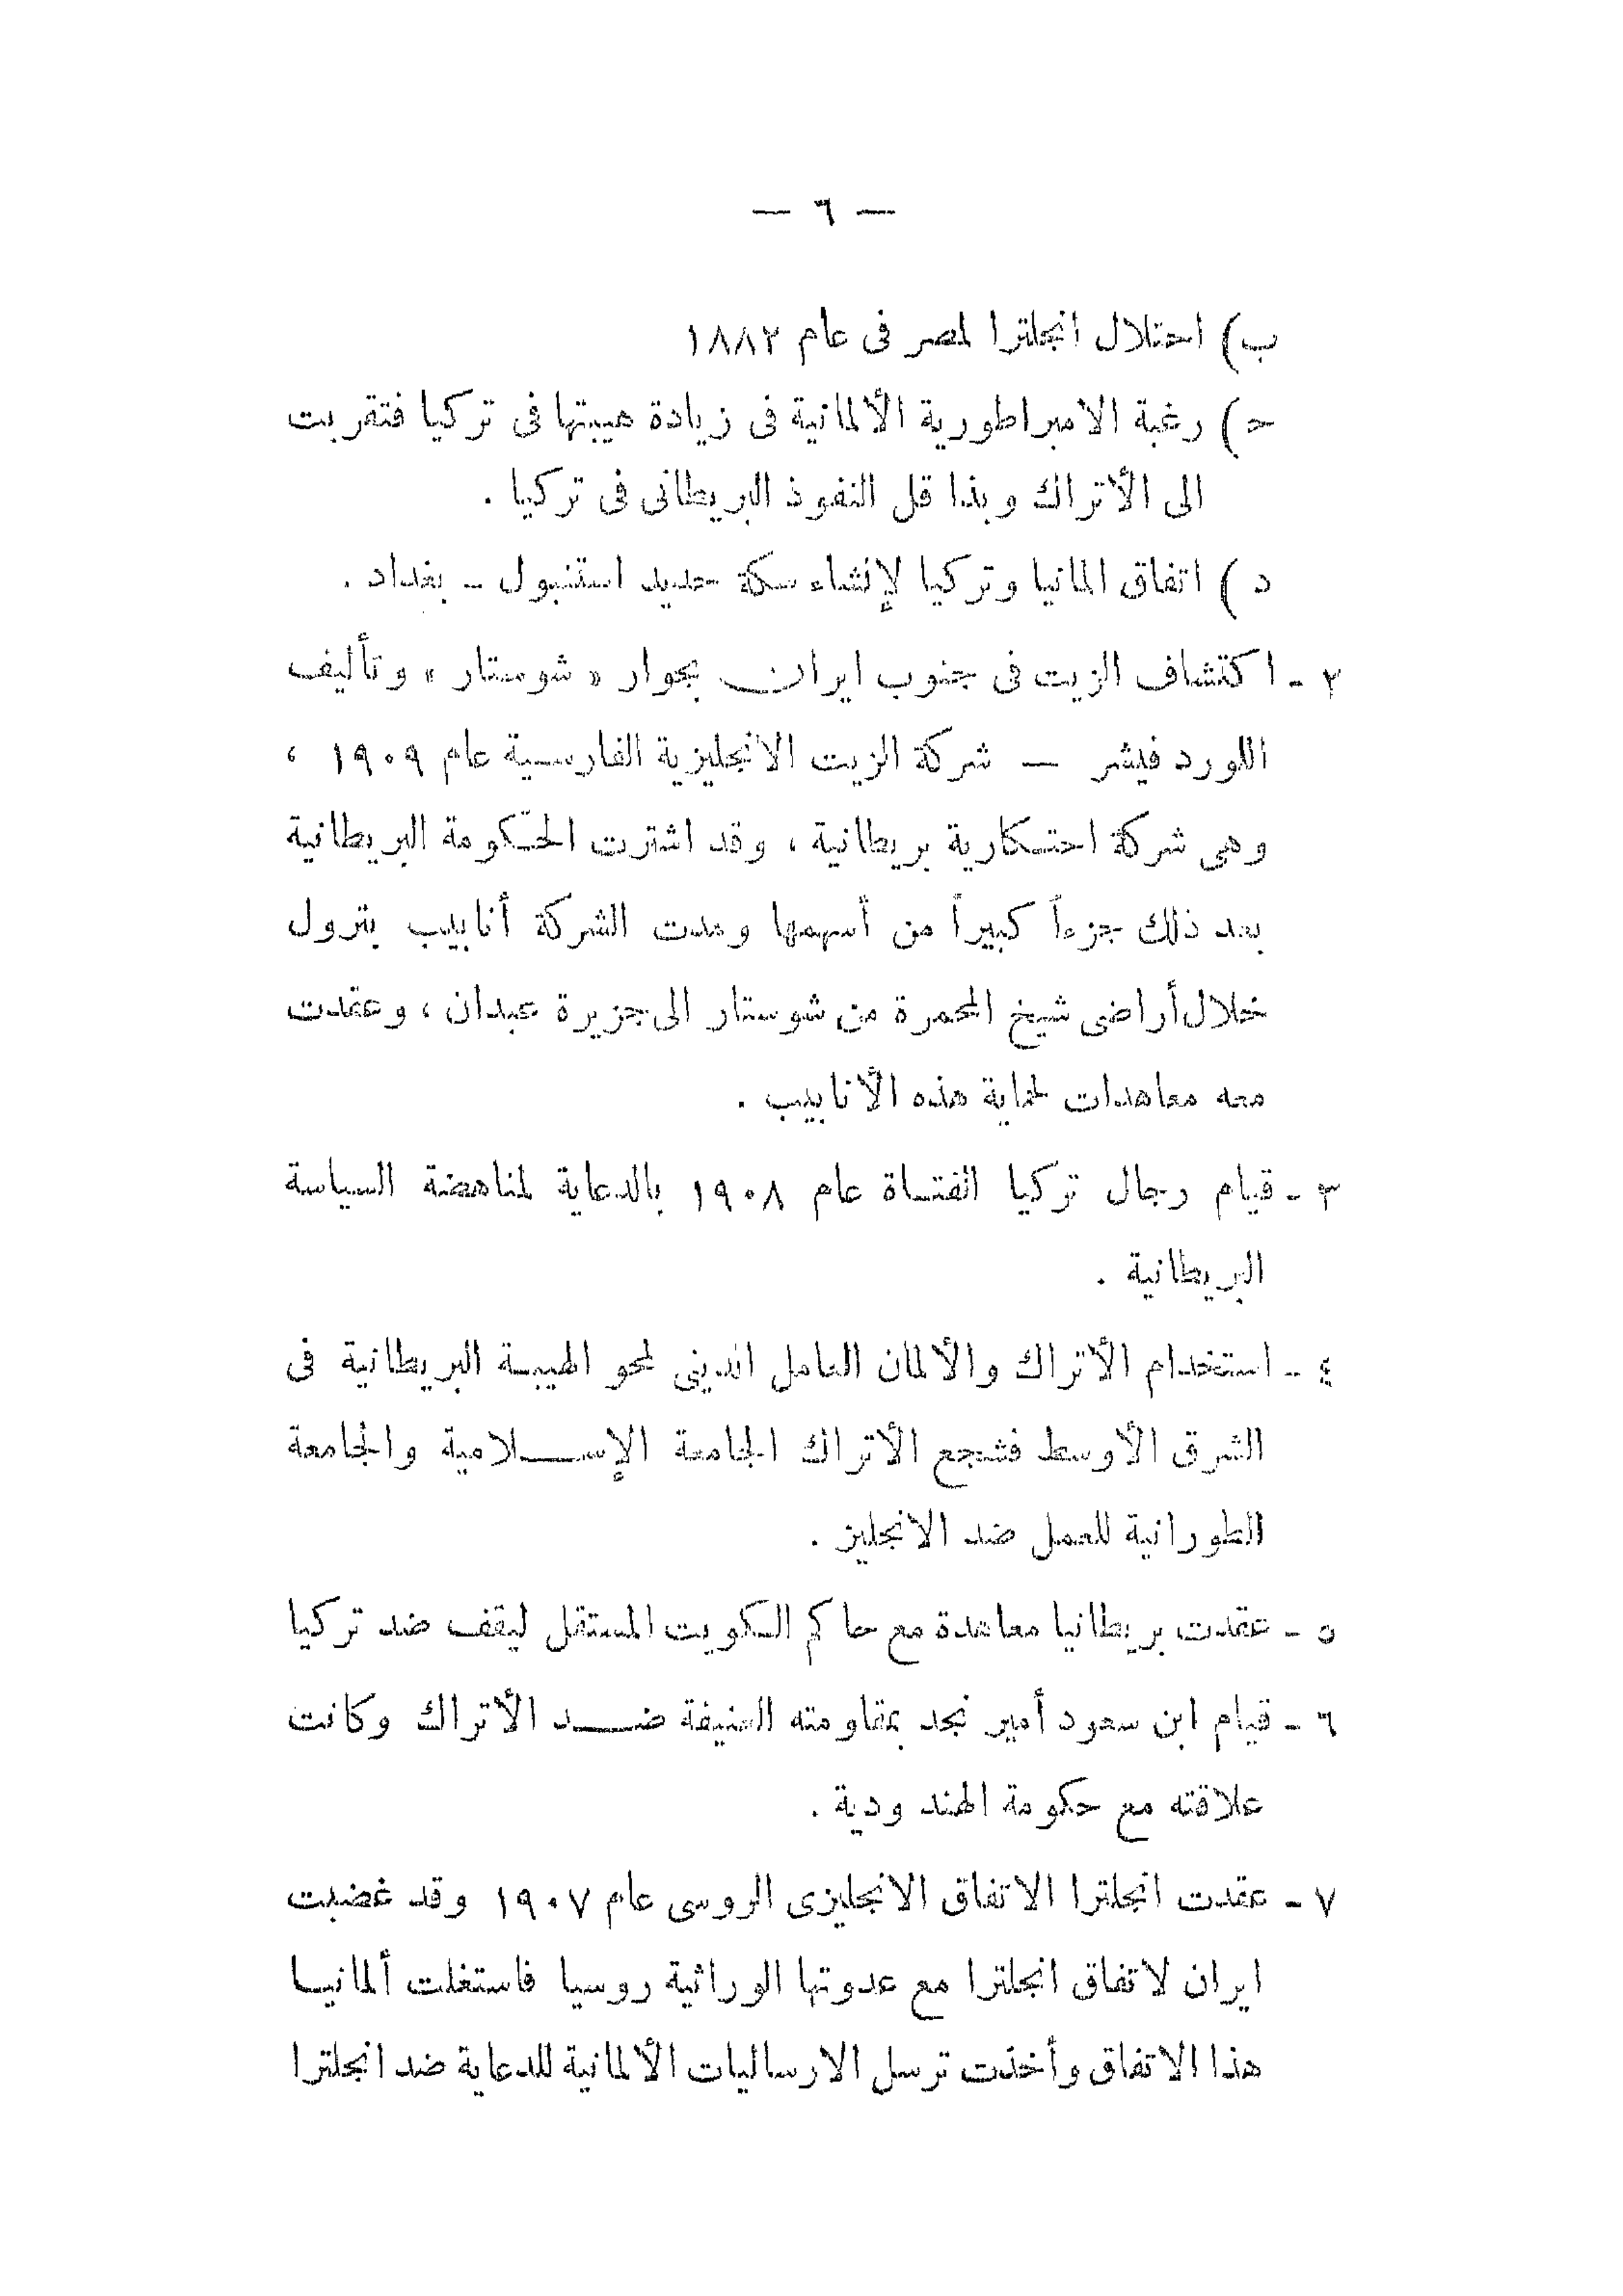 — ٦ —
ب) احتلال انجلترا لمصر فى عام ١٨٨٢
ج) رغبة الامبراطورية الألمانية فى زيادة هيبتها فى تركيا فتقربت
الى الأتراك وبذا قل النفوذ البريطانى فى تركيا .
د) اتفاق المانيا وتركيا لإنشاء سكة حديد استنبول - بغداد .
٢ - اكتشاف الزيت فى جنوب ايران بجوار « شوستار » وتأليف
اللورد فيشر — شركة الزيت الانجليزية الفارسية عام ١٩٠٩ ،
وهى شركة احتكارية بريطانية ، وقد اشترت الحكومة البريطانية
بعد ذلك جزءاً كبيراً من أسهمها ومدت الشركة أنابيب بترول
خلال أراضى شيخ المحمرة من شوستار الى جزيرة عبدان ، وعقدت
معه معاهدات لحماية هذه الأنابيب .
٣ - قيام رجال تركيا الفتاة عام ١٩٠٨ بالدعاية لمناهضة السياسة
البريطانية .
٤ - استخدام الأتراك والألمان العامل الدينى لمحو الهيبة البريطانية فى
الشرق الأوسط فشجع الأتراك الجامعة الإسلامية والجامعة
الطورانية للعمل ضد الانجليز .
٥ - عقدت بريطانيا معاهدة مع حاكم الكويت المستقل ليقف ضد تركيا
٦ - قيام ابن سعود أمير نجد بمقاومته العنيفة ضد الأتراك وكانت
علاقته مع حكومة الهند ودية .
٧ - عقدت انجلترا الاتفاق الانجليزى الروسى عام ١٩٠٧ وقد غضبت
ايران لاتفاق انجلترا مع عدوتها الوراثية روسيا فاستغلت ألمانيا
هذا الاتفاق وأخذت ترسل الارساليات الألمانية للدعاية ضد انجلترا